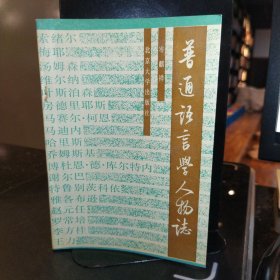 普通语言学人物志
岑麒祥
北京大学出版社
索绪尔
梅耶
汤姆森
维尔纳
叶斯泊森
房德里耶斯
马赛尔·柯恩
马迪内
哈里斯
乔姆斯基
博杜恩·德·库尔特内
谢尔巴
特鲁别茨科依
雅各布逊
赵元任
罗常培
李方桂
王力